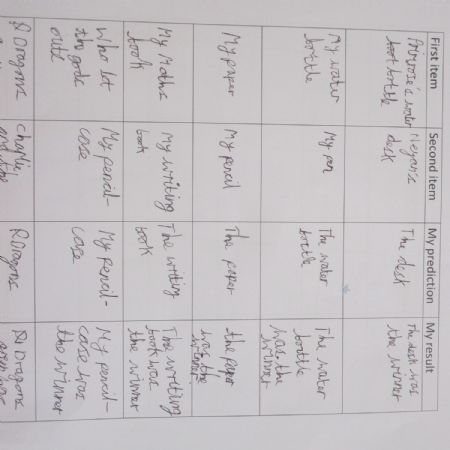 First item
Second item
My prediction
My result
Primrose's water
bottle
Neyan's
desk
The desk
The desk was
the winner
My water
bottle
My pen
The water
bottle
The water
bottle
was the
winner
My paper
My pencil
The paper
the paper
was the
winner
My Maths
book
My writing
book
The writing
book
The writing
book was
the winner
Who let
the gods
out?
My pencil-
case
My pencil-
case
My pencil-
case was
the winner
Dragons
Charlie
Dragons
Dragons